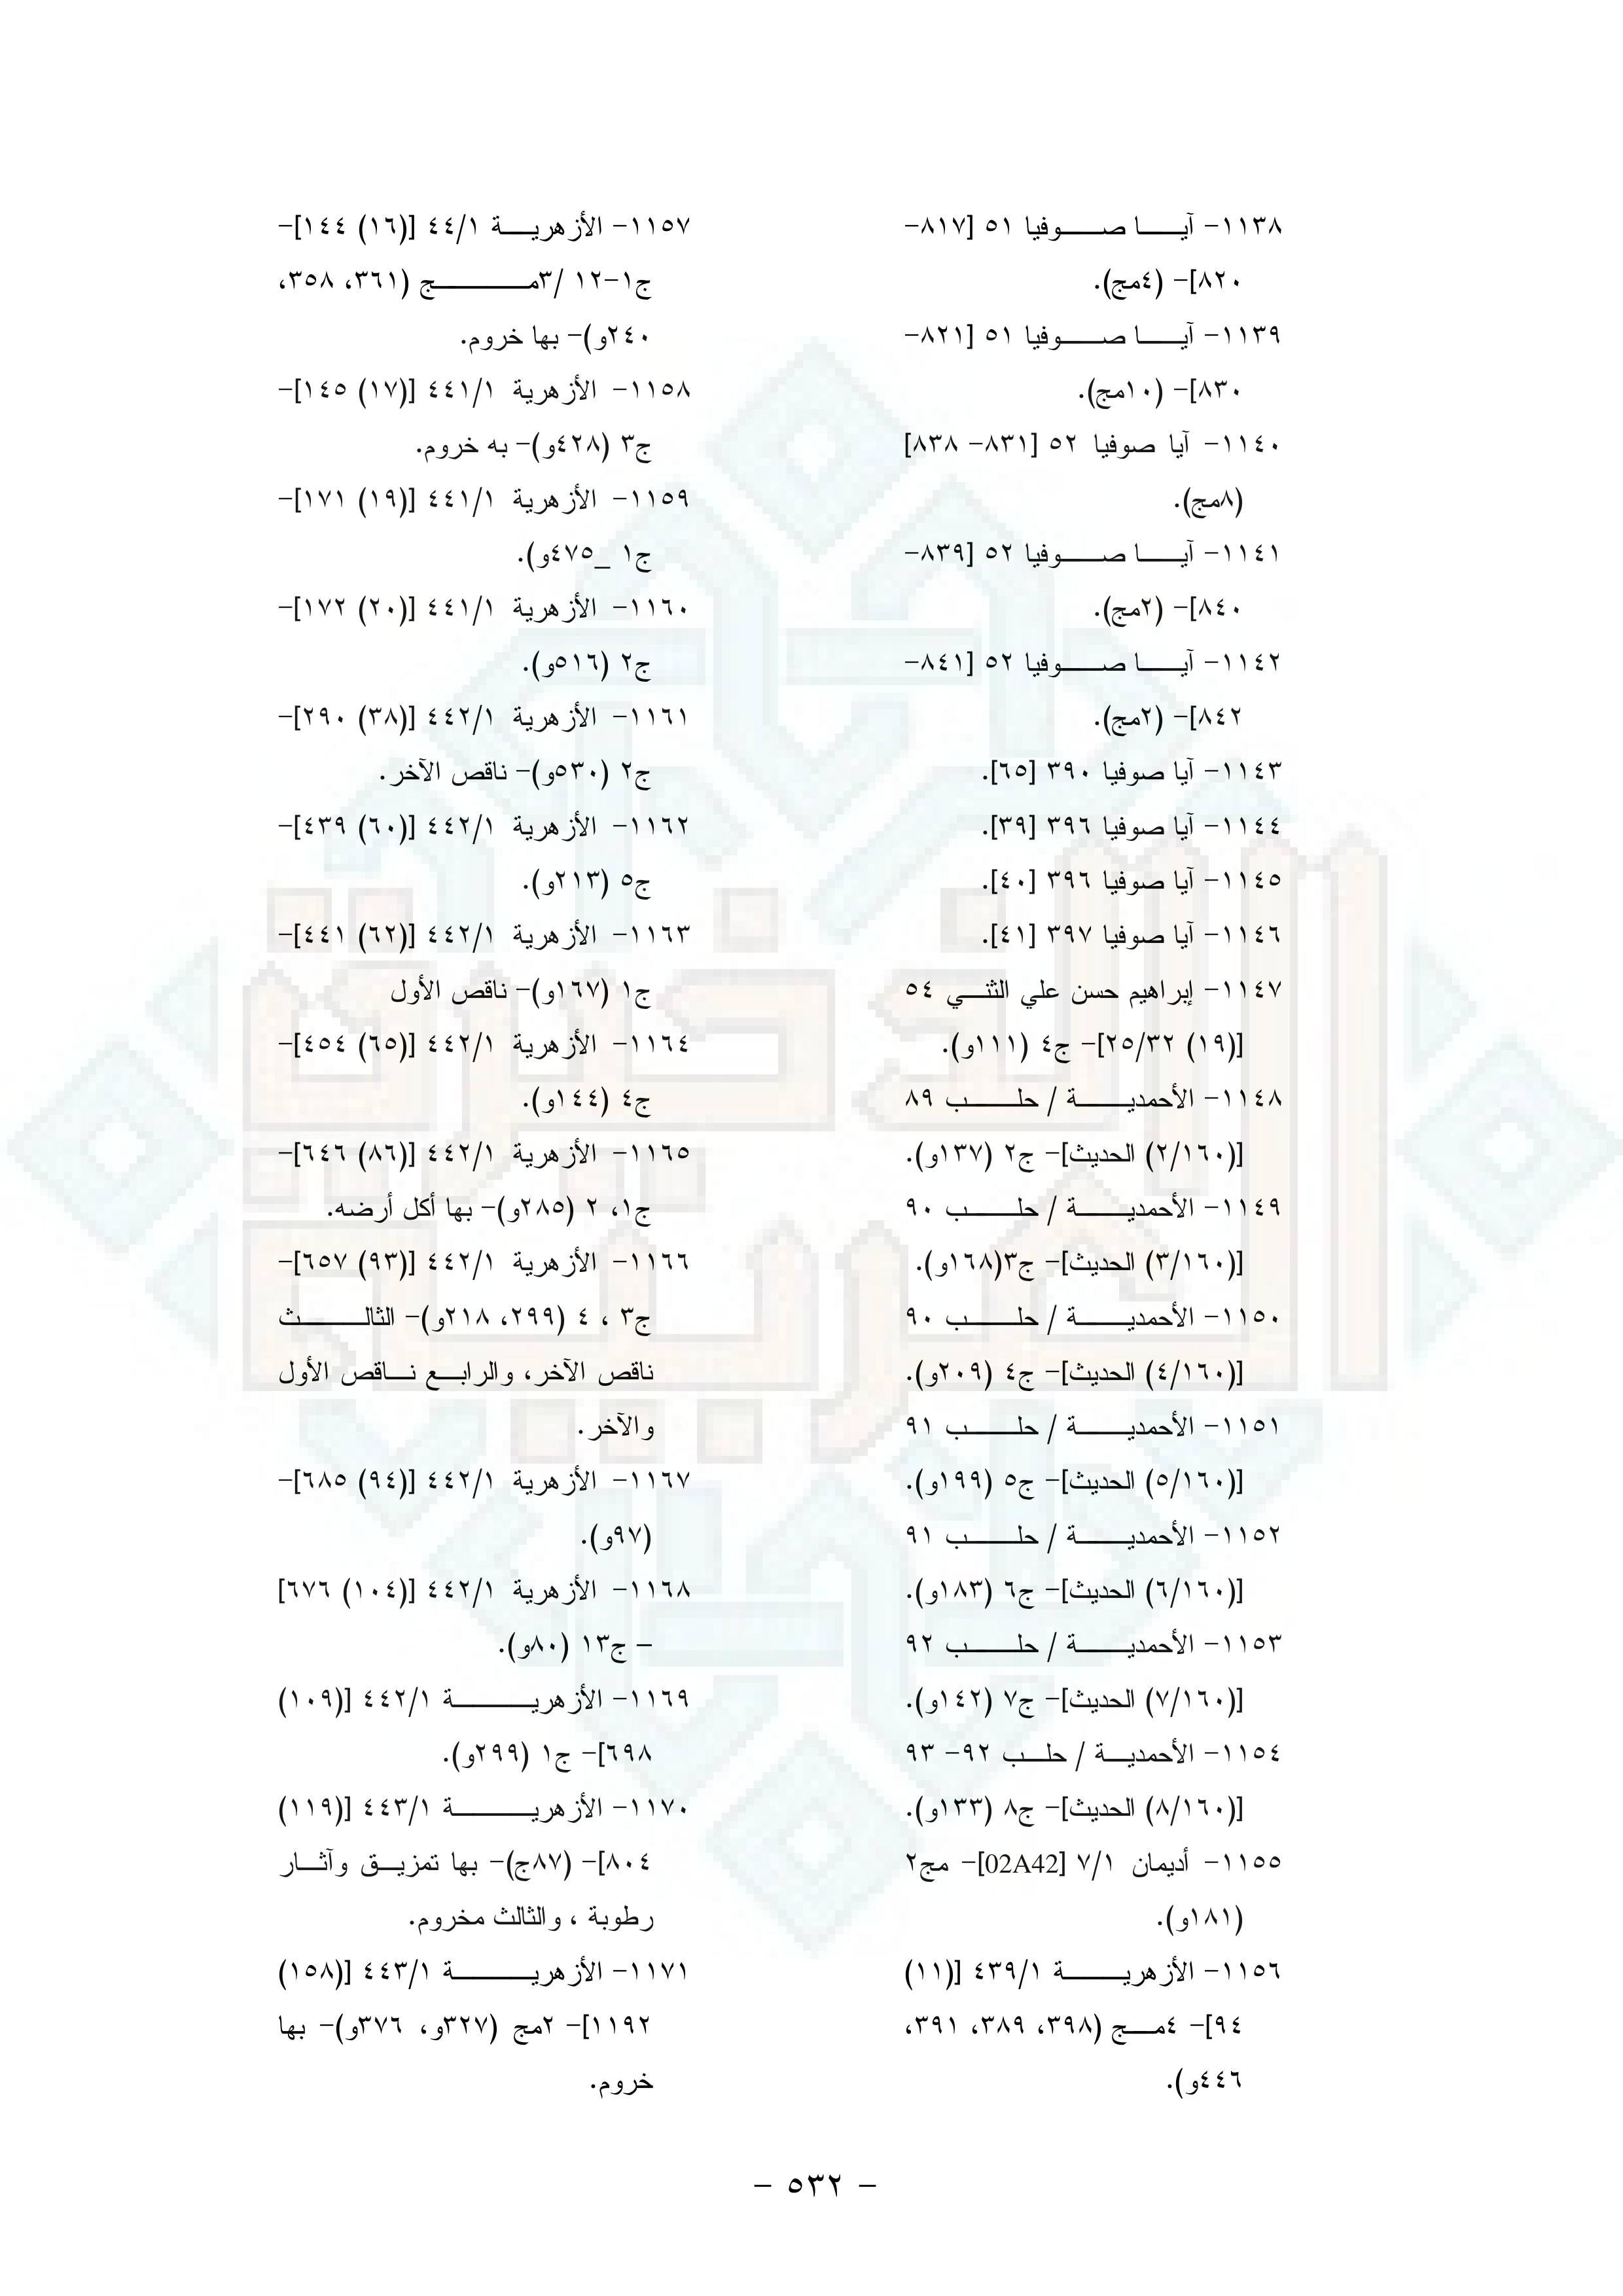 ١١٣٨- آيـــا صـــوفيا ٥١ [٨١٧-
٨٢٠]- (٤مج).
١١٣٩- آيـــا صـــوفيا ٥١ [٨٢١-
٨٣٠]- (١٠مج).
١١٤٠- آيا صوفيا ٥٢ [٨٣١- ٨٣٨]
(٨مج).
١١٤١- آيـــا صـــوفيا ٥٢ [٨٣٩-
٨٤٠]- (٢مج).
١١٤٢- آيـــا صـــوفيا ٥٢ [٨٤١-
٨٤٢]- (٢مج).
١١٤٣- آيا صوفيا ٣٩٠ [٦٥].
١١٤٤- آيا صوفيا ٣٩٦ [٣٩].
١١٤٥- آيا صوفيا ٣٩٦ [٤٠].
١١٤٦- آيا صوفيا ٣٩٧ [٤١].
١١٤٧- إبراهيم حسن علي الثنـــي ٥٤
[(١٩) ٢٥/٣٢]- ج٤ (١١١و).
١١٤٨- الأحمديـــــة / حلـــــب ٨٩
[(٢/١٦٠) الحديث]- ج٢ (١٣٧و).
١١٤٩- الأحمديـــــة / حلـــــب ٩٠
[(٣/١٦٠) الحديث]- ج٣(١٦٨و).
١١٥٠- الأحمديـــــة / حلـــــب ٩٠
[(٤/١٦٠) الحديث]- ج٤ (٢٠٩و).
١١٥١- الأحمديـــــة / حلـــــب ٩١
[(٥/١٦٠) الحديث]- ج٥ (١٩٩و).
١١٥٢- الأحمديـــــة / حلـــــب ٩١
[(٦/١٦٠) الحديث]- ج٦ (١٨٣و).
١١٥٣- الأحمديـــــة / حلـــــب ٩٢
[(٧/١٦٠) الحديث]- ج٧ (١٤٢و).
١١٥٤- الأحمديـــة / حلـــب ٩٢- ٩٣
[(٨/١٦٠) الحديث]- ج٨ (١٣٣و).
١١٥٥- أديمان ٧/١ [02A42]- مج٢
(١٨١و).
١١٥٦- الأزهريـــــــة ٤٣٩/١ [(١١)
٩٤]- ٤مـــج (٣٩٨، ٣٨٩، ٣٩١،
٤٤٦و).
١١٥٧- الأزهريـــة ٤٤/١ [(١٦) ١٤٤]-
ج١-١٢ /٣مـــــــــــج (٣٦١، ٣٥٨،
٢٤٠و)- بها خروم.
١١٥٨- الأزهرية ٤٤١/١ [(١٧) ١٤٥]-
ج٣ (٤٢٨و)- به خروم.
١١٥٩- الأزهرية ٤٤١/١ [(١٩) ١٧١]-
ج١ _٤٧٥و).
١١٦٠- الأزهرية ٤٤١/١ [(٢٠) ١٧٢]-
ج٢ (٥١٦و).
١١٦١- الأزهرية ٤٤٢/١ [(٣٨) ٢٩٠]-
ج٢ (٥٣٠و)- ناقص الآخر.
١١٦٢- الأزهرية ٤٤٢/١ [(٦٠) ٤٣٩]-
ج٥ (٢١٣و).
١١٦٣- الأزهرية ٤٤٢/١ [(٦٢) ٤٤١]-
ج١ (١٦٧و)- ناقص الأول
١١٦٤- الأزهرية ٤٤٢/١ [(٦٥) ٤٥٤]-
ج٤ (١٤٤و).
١١٦٥- الأزهرية ٤٤٢/١ [(٨٦) ٦٤٦]-
ج١، ٢ (٢٨٥و)- بها أكل أرضه.
١١٦٦- الأزهرية ٤٤٢/١ [(٩٣) ٦٥٧]-
ج٣ ، ٤ (٢٩٩، ٢١٨و)- الثالـــــــث
ناقص الآخر، والرابـــع نـــاقص الأول
والآخر.
١١٦٧- الأزهرية ٤٤٢/١ [(٩٤) ٦٨٥]-
(٩٧و).
١١٦٨- الأزهرية ٤٤٢/١ [(١٠٤) ٦٧٦]
– ج١٣ (٨٠و).
١١٦٩- الأزهريـــــــــة ٤٤٢/١ [(١٠٩)
٦٩٨]- ج١ (٢٩٩و).
١١٧٠- الأزهريـــــــــة ٤٤٣/١ [(١١٩)
٨٠٤]- (٨٧ج)- بها تمزيـــق وآثـــار
رطوبة ، والثالث مخروم.
١١٧١- الأزهريـــــــــة ٤٤٣/١ [(١٥٨)
١١٩٢]- ٢مج (٣٢٧و، ٣٧٦و)- بها
خروم.
- ٥٣٢ -
الذخيرة
العربية